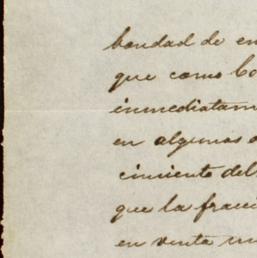 bondad de en
que como Co
inmediatam
en algunos
cimiento del
que la fracci
en venta